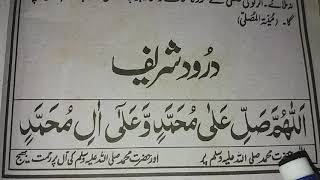 گا۔ (مُنیۃ المُصلّی)
درود شریف
اَللّٰهُمَّ صَلِّ عَلٰی مُحَمَّدٍ وَّعَلٰٓی اٰلِ مُحَمَّدٍ
حضرت محمد صلی اللہ علیہ وسلم پر اور حضرت محمد صلی اللہ علیہ وسلم کی آل پر رحمت بھیج